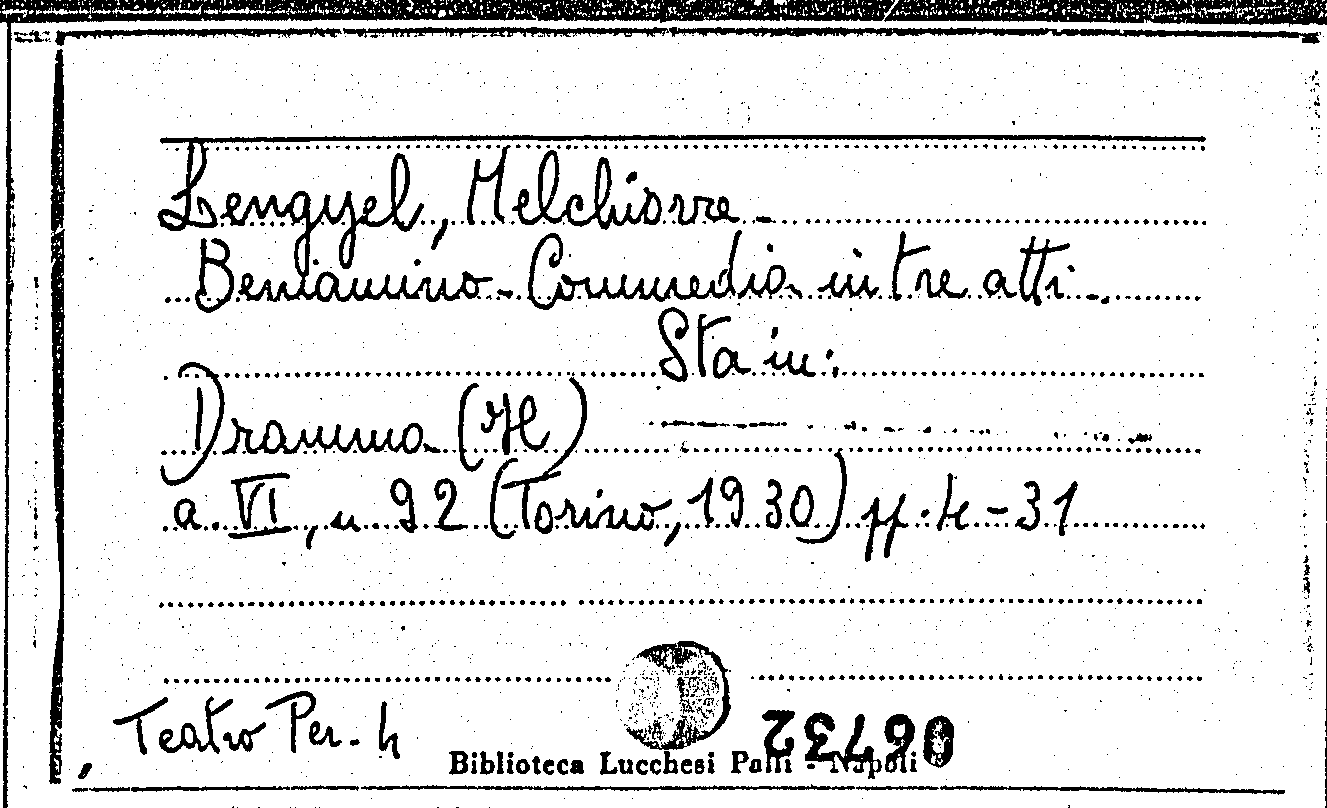 Lengyel, Melchiorre -
Beniamino - Commedia in tre atti -
Sta in:
Dramma (Il)
a. VI, n. 92 (Torino, 1930) pp. 4 - 31
Teatro Per. 4
06732
Biblioteca Lucchesi Palli - Napoli